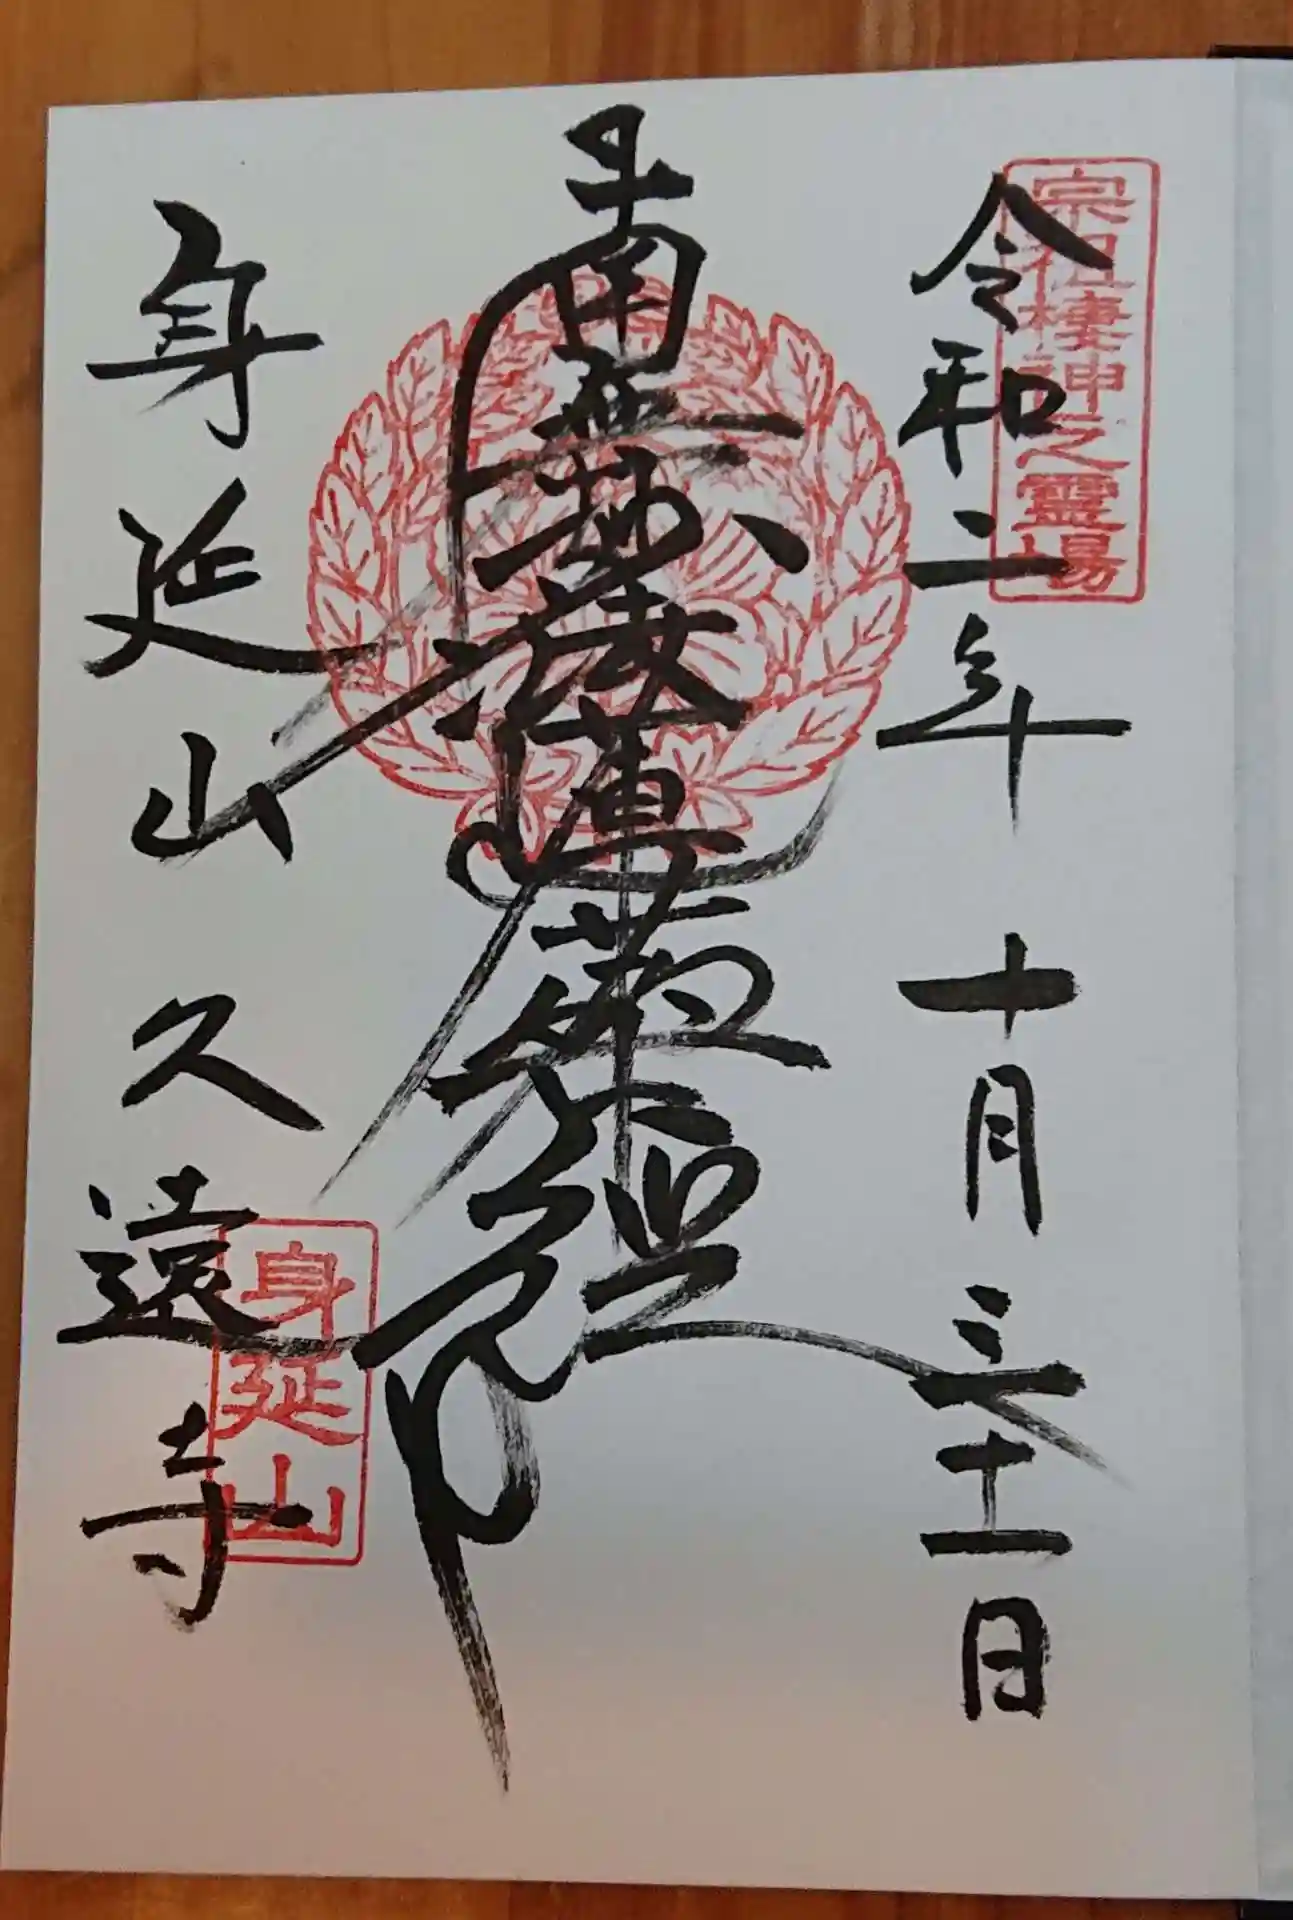 宗祖棲神之霊場
令和二年 十月三十一日
南無妙法蓮華経
身延山
身延山久遠寺